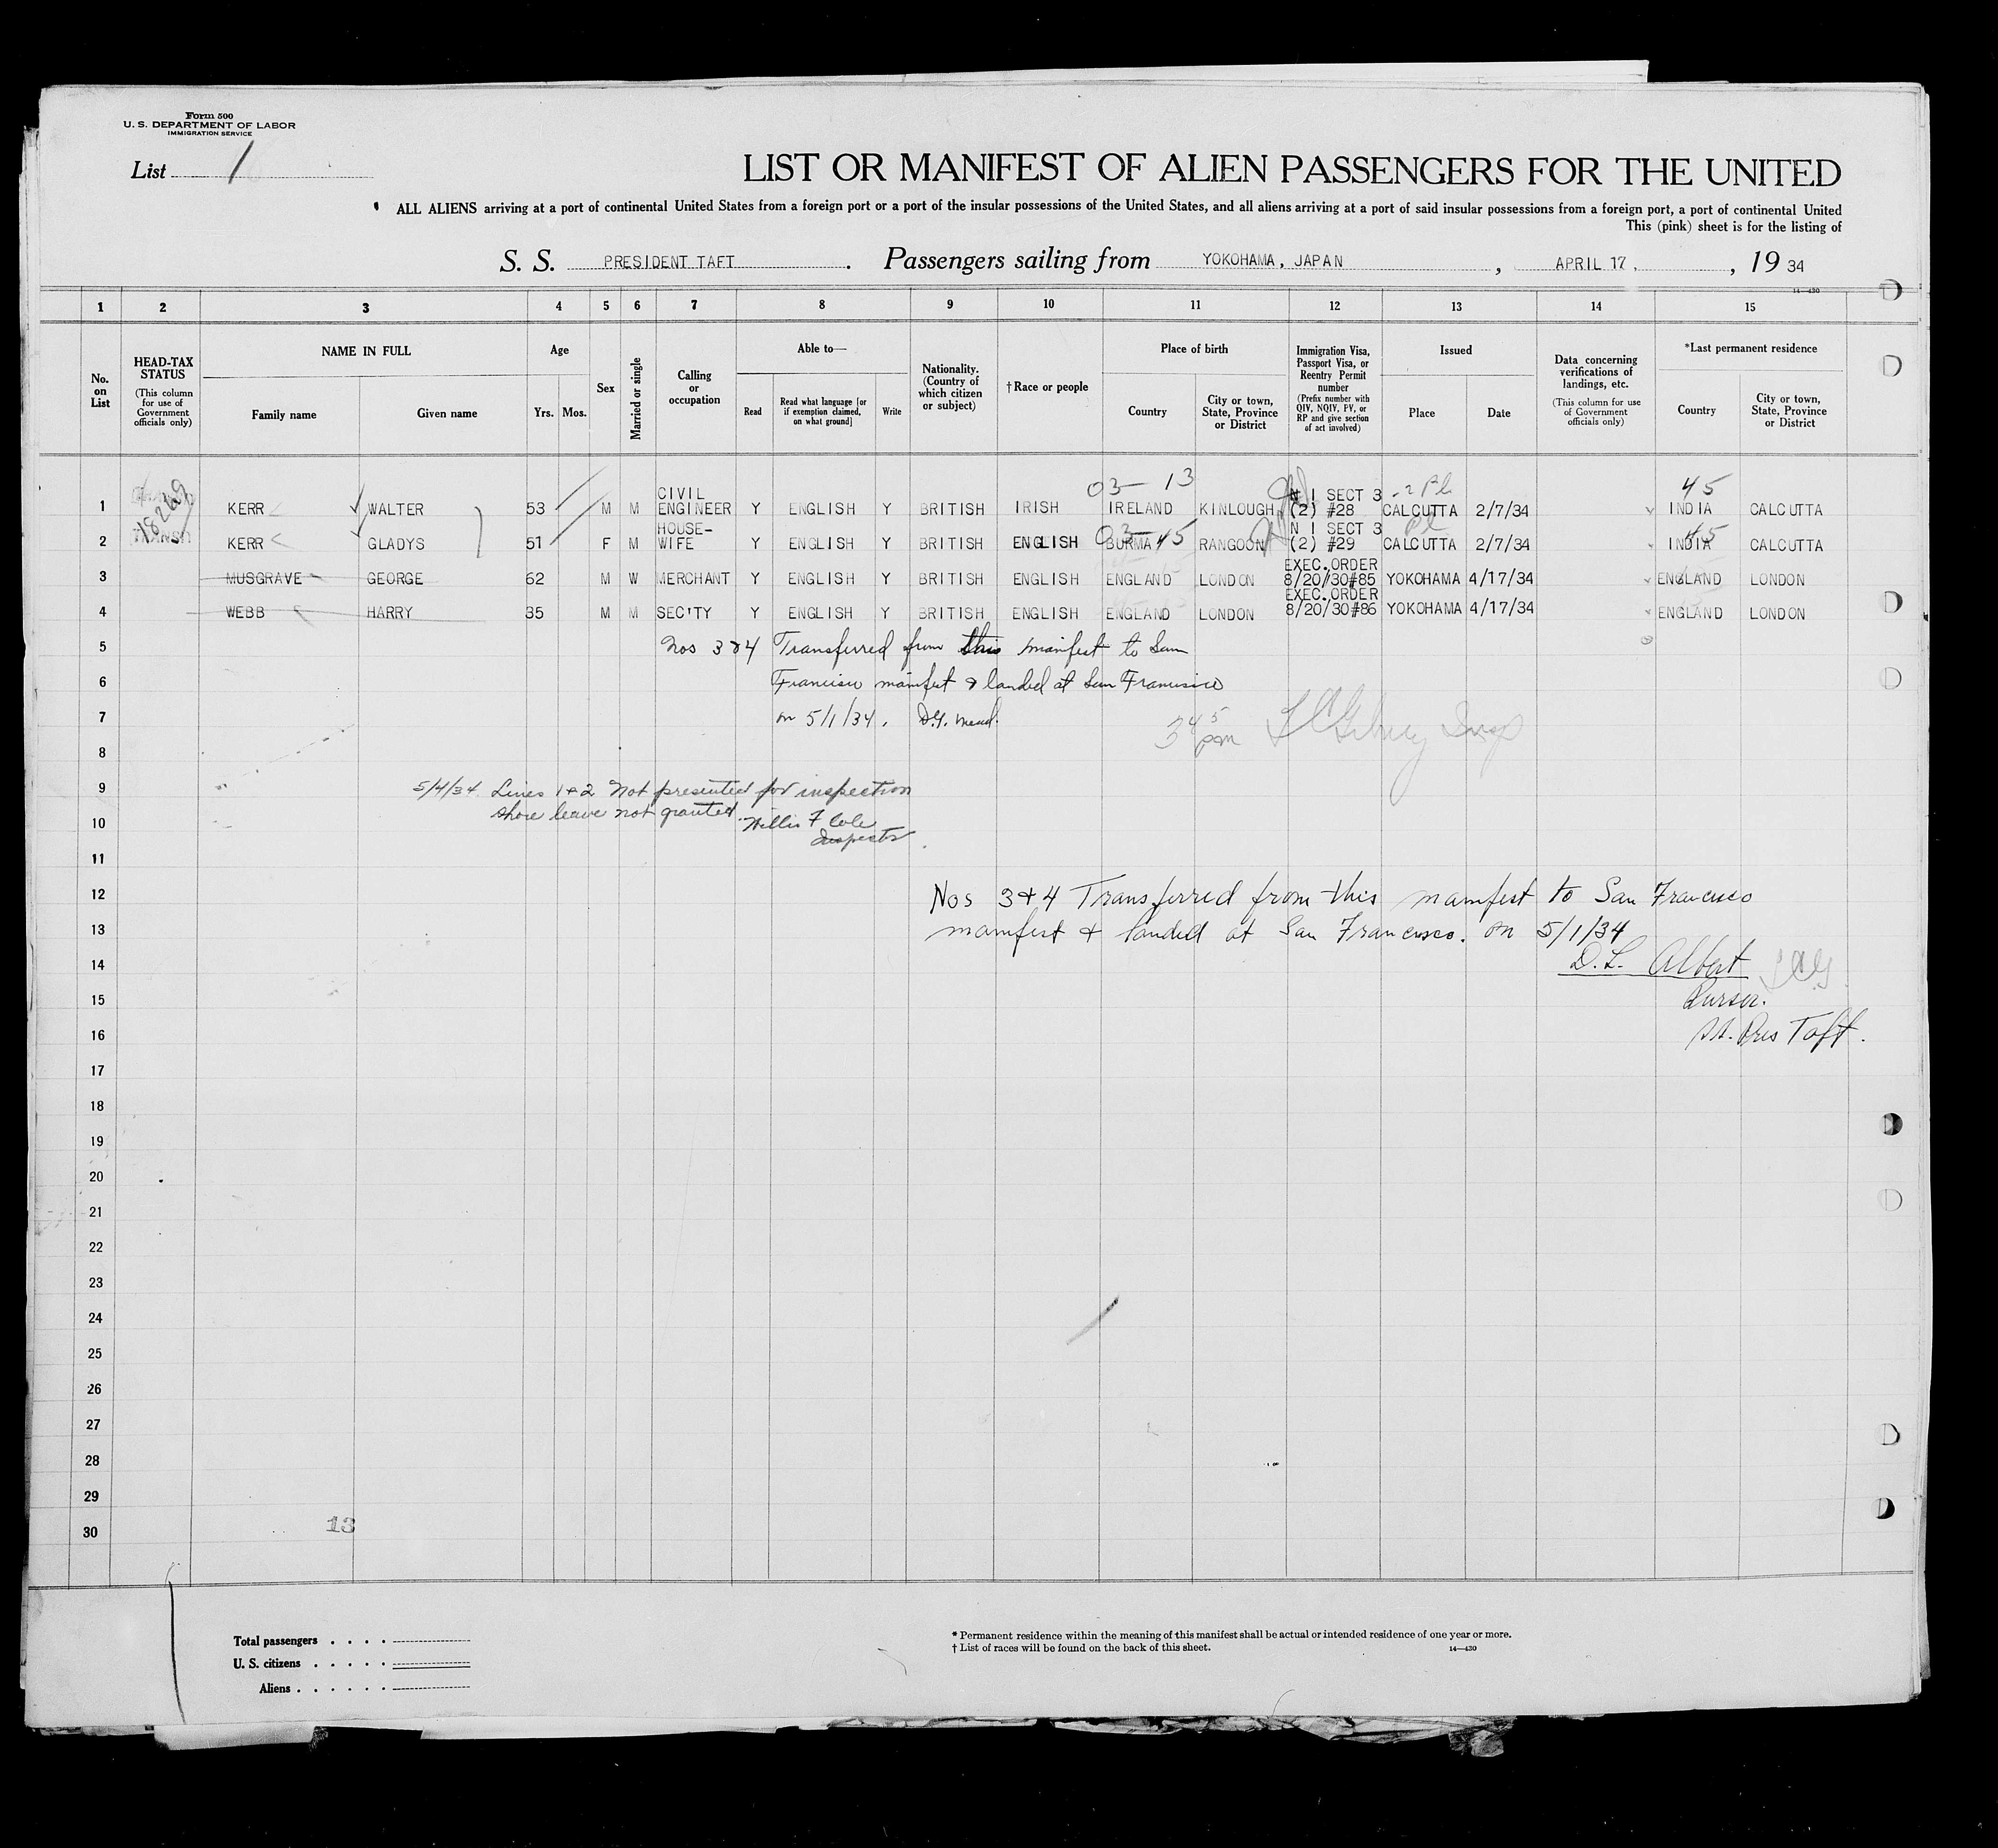 Form 500
U. S. DEPARTMENT OF LABOR
IMMIGRATION SERVICE
List 1
LIST OR MANIFEST OF ALIEN PASSENGERS FOR THE UNITED
ALL ALIENS arriving at a port of continental United States from a foreign port or a port of the insular possessions of the United States, and all aliens arriving at a port of said insular possessions from a foreign port, a port of continental United
This (pink) sheet is for the listing of
S. S. PRESIDENT TAFT. Passengers sailing from YOKOHAMA, JAPAN, APRIL 17, , 19 34
14—430
1 2 3 4 5 6 7 8 9 10 11 12 13 14 15
No. on List
HEAD-TAX STATUS (This column for use of Government officials only)
NAME IN FULL
Family name Given name
Age
Yrs. Mos.
Sex
Married or single
Calling or occupation
Able to—
Read Read what language [or if exemption claimed, on what ground] Write
Nationality. (Country of which citizen or subject)
†Race or people
Place of birth
Country City or town, State, Province or District
Immigration Visa, Passport Visa, or Reentry Permit number (Prefix number with QIV, NQIV, PV, or RP and give section of act involved)
Issued
Place Date
Data concerning verifications of landings, etc. (This column for use of Government officials only)
*Last permanent residence
Country City or town, State, Province or District
03- 13 45
1 KERR WALTER 53 M M CIVIL ENGINEER Y ENGLISH Y BRITISH IRISH IRELAND KINLOUGH N I SECT 3 (2) #28 CALCUTTA 2/7/34 INDIA CALCUTTA
03- 45 45
2 KERR GLADYS 51 F M HOUSE-WIFE Y ENGLISH Y BRITISH ENGLISH BURMA RANGOON N I SECT 3 (2) #29 CALCUTTA 2/7/34 INDIA CALCUTTA
3 MUSGRAVE GEORGE 62 M W MERCHANT Y ENGLISH Y BRITISH ENGLISH ENGLAND LONDON EXEC.ORDER 8/20/30#85 YOKOHAMA 4/17/34 ENGLAND LONDON
4 WEBB HARRY 35 M M SEC'TY Y ENGLISH Y BRITISH ENGLISH ENGLAND LONDON EXEC.ORDER 8/20/30#86 YOKOHAMA 4/17/34 ENGLAND LONDON
5 Nos 3 & 4 Transferred from this manifest to San
6 Francisco manifest & landed at San Francisco
7 on 5/1/34. D.G. Mead.
8
9 5/4/34 Lines 1+2 not presented for inspection
shore leave not granted.
10 Willis F Cole
Inspector
11
12 Nos 3+4 Transferred from this manifest to San Francisco
13 manifest + landed at San Francisco. on 5/1/34
14 D. L. Albert
15 Purser.
16 SS. Pres Taft.
17
18
19
20
21
22
23
24
25
26
27
28
29
30
13
Total passengers
U. S. citizens
Aliens
* Permanent residence within the meaning of this manifest shall be actual or intended residence of one year or more.
† List of races will be found on the back of this sheet.
14—430